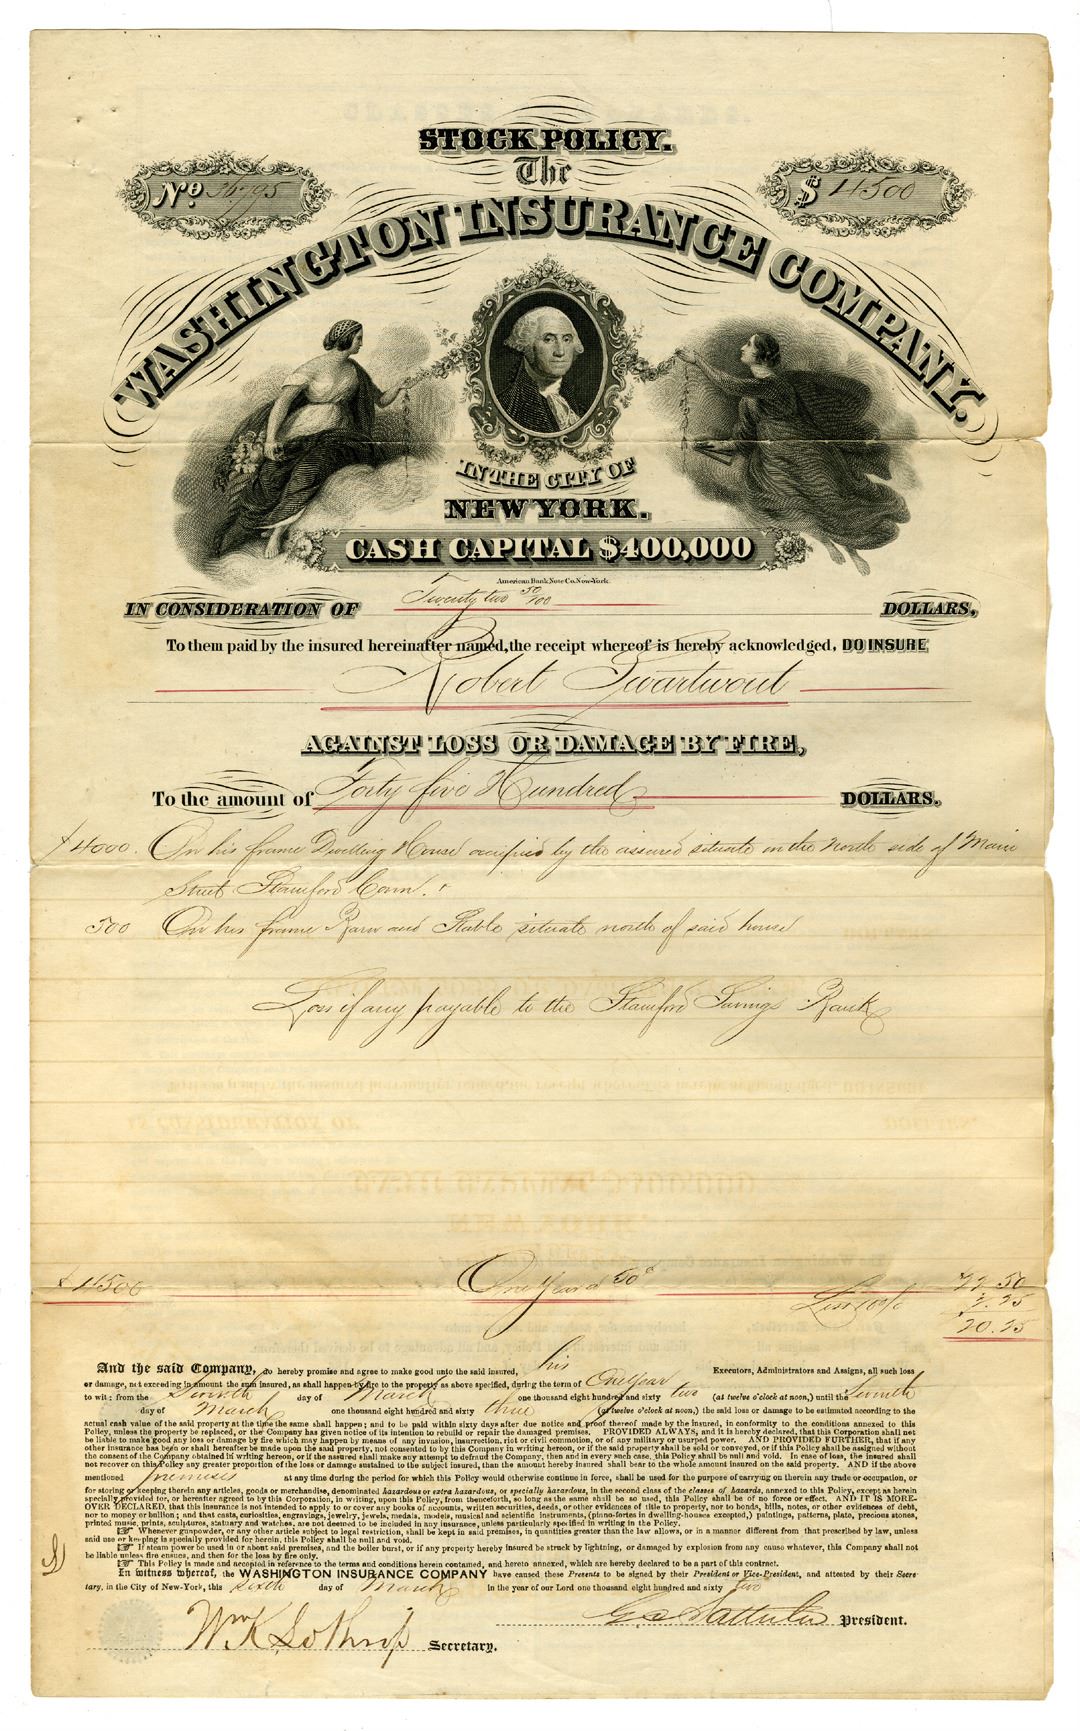 STOCK POLICY.
The
No.
$ 4500
WASHINGTON INSURANCE COMPANY.
IN THE CITY OF
NEW YORK.
CASH CAPITAL $400,000
American Bank Note Co. New-York.
IN CONSIDERATION OF Twenty two 50/100 DOLLARS,
To them paid by the insured hereinafter named, the receipt whereof is hereby acknowledged, DO INSURE
Robert Swartwout
AGAINST LOSS OR DAMAGE BY FIRE,
To the amount of Forty five Hundred DOLLARS.
$4000. On his frame Dwelling House occupied by the assured situate on the North side of Main
Street Stamford Conn.
500 On his frame Barn and Stable situate north of said house
Loss if any payable to the Stamford Savings Bank
$4500 One Year @ 50c 22.50
Less 10% 2.25
20.25
And the said Company, do hereby promise and agree to make good unto the said insured, his Executors, Administrators and Assigns, all such loss
or damage, not exceeding in amount the sum insured, as shall happen by fire to the property as above specified, during the term of One year
to wit: from the Seventh day of March one thousand eight hundred and sixty two (at twelve o'clock at noon,) until the Seventh
day of March one thousand eight hundred and sixty three (at twelve o'clock at noon,) the said loss or damage to be estimated according to the
actual cash value of the said property at the time the same shall happen; and to be paid within sixty days after due notice and proof thereof made by the insured, in conformity to the conditions annexed to this
Policy, unless the property be replaced, or the Company has given notice of its intention to rebuild or repair the damaged premises. PROVIDED ALWAYS, and it is hereby declared, that this Corporation shall not
be liable to make good any loss or damage by fire which may happen by means of any invasion, insurrection, riot or civil commotion, or of any military or usurped power. AND PROVIDED FURTHER, that if any
other insurance has been or shall hereafter be made upon the said property, not consented to by this Company in writing hereon, or if the said property shall be sold or conveyed, or if this Policy shall be assigned without
the consent of the Company obtained in writing hereon, or if the assured shall make any attempt to defraud the Company, then and in every such case, this Policy shall be null and void. In case of loss, the insured shall
not recover on this Policy any greater proportion of the loss or damage sustained to the subject insured, than the amount hereby insured shall bear to the whole amount insured on the said property. AND if the above
mentioned premises at any time during the period for which this Policy would otherwise continue in force, shall be used for the purpose of carrying on therein any trade or occupation, or
for storing or keeping therein any articles, goods or merchandise, denominated hazardous or extra hazardous, or specially hazardous, in the second class of the classes of hazards, annexed to this Policy, except as herein
specially provided for, or hereafter agreed to by this Corporation, in writing, upon this Policy, from thenceforth, so long as the same shall be so used, this Policy shall be of no force or effect. AND IT IS MORE-
OVER DECLARED, that this insurance is not intended to apply to or cover any books of accounts, written securities, deeds, or other evidences of title to property, nor to bonds, bills, notes, or other evidences of debt,
nor to money or bullion; and that casts, curiosities, engravings, jewelry, jewels, medals, models, musical and scientific instruments, (piano-fortes in dwelling-houses excepted,) paintings, patterns, plate, precious stones,
printed music, prints, sculptures, statuary and watches, are not deemed to be included in any insurance, unless particularly specified in writing in the Policy.
☞ Whenever gunpowder, or any other article subject to legal restriction, shall be kept in said premises, in quantities greater than the law allows, or in a manner different from that prescribed by law, unless
said use or keeping is specially provided for herein, this Policy shall be null and void.
☞ If steam power be used in or about said premises, and the boiler burst, or if any property hereby insured be struck by lightning, or damaged by explosion from any cause whatever, this Company shall not
be liable unless fire ensues, and then for the loss by fire only.
☞ This Policy is made and accepted in reference to the terms and conditions herein contained, and hereto annexed, which are hereby declared to be a part of this contract.
In witness whereof, the WASHINGTON INSURANCE COMPANY have caused these Presents to be signed by their President or Vice-President, and attested by their Secre-
tary, in the City of New-York, this sixth day of March in the year of our Lord one thousand eight hundred and sixty two
Geo Satterlee President.
Wm K Lothrop Secretary.